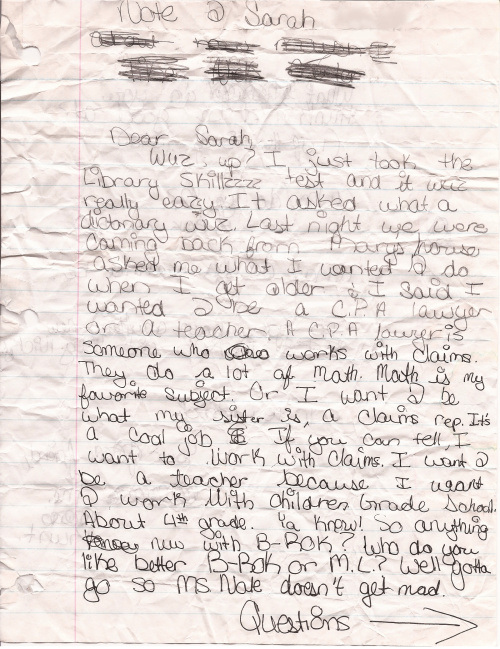 Note 2 Sarah
Dear Sarah,
Wuz up? I just took the
Library Skillzzzz test and it wuz
really eazy. It asked what a
dictionary wuz. Last night we were
coming back from house
asked me what I wanted 2 do
when I get older & I said I
wanted 2 be a C.P.A lawyer
or a teacher. A C.P.A lawyer is
someone who works with claims.
They do a lot of math. Math is my
favorite subject. Or I want 2 be
what my sister is, a claims rep. It's
a cool job If you can tell, I
want to work with claims. I want 2
be a teacher because I want
2 work with children Grade School.
About 4th grade. Ya know! So anything
new with B-Rok? Who do you
like better B-Rok or M.L.? Well gotta
go so Ms. Nate doesn't get mad.
Questions →